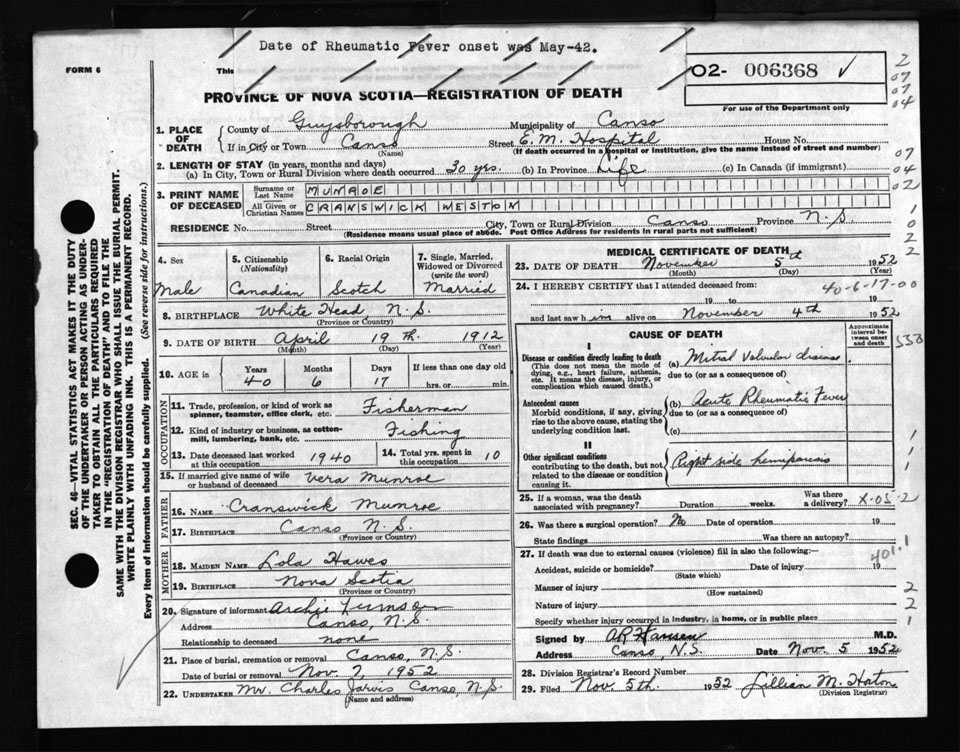 Date of Rheumatic Fever onset was May-42.
FORM 6
This
O2- 006368 ✓
2
07
07
04
PROVINCE OF NOVA SCOTIA—REGISTRATION OF DEATH
For use of the Department only
1. PLACE OF DEATH
County of Guysborough Municipality of Canso
If in City or Town Canso Street E. M. Hospital House No.
(Name) (If death occurred in a hospital or institution, give the name instead of street and number)
07
04
02
2. LENGTH OF STAY (in years, months and days)
(a) In City, Town or Rural Division where death occurred 30 yrs. (b) In Province Life (c) In Canada (if immigrant)
3. PRINT NAME OF DECEASED
Surname or Last Name MUNROE
All Given or Christian Names CRANSWICK WESTON
RESIDENCE No. Street City, Town or Rural Division Canso Province N.S.
(Residence means usual place of abode. Post Office Address for residents in rural parts not sufficient)
1
0
2
2
4. Sex
Male
5. Citizenship (Nationality)
Canadian
6. Racial Origin
Scotch
7. Single, Married, Widowed or Divorced (write the word)
Married
8. BIRTHPLACE White Head N.S.
(Province or Country)
9. DATE OF BIRTH April 19th. 1912
(Month) (Day) (Year)
10. AGE in
Years 40
Months 6
Days 17
If less than one day old
hrs. or min.
OCCUPATION
11. Trade, profession, or kind of work as spinner, teamster, office clerk, etc. Fisherman
12. Kind of industry or business, as cotton-mill, lumbering, bank, etc. Fishing
13. Date deceased last worked at this occupation 1940
14. Total yrs. spent in this occupation 10
15. If married give name of wife or husband of deceased Vera Munroe
FATHER
16. Name Cranswick Munroe
17. Birthplace Canso N.S.
(Province or Country)
MOTHER
18. Maiden Name Lola Hawes
19. Birthplace Nova Scotia
(Province or Country)
20. Signature of informant Archie
Address Canso, N.S.
Relationship to deceased none
21. Place of burial, cremation or removal Canso, N.S.
Date of burial or removal Nov. 7, 1952
22. UNDERTAKER Mr. Charles Jarvis Canso, N.S.
(Name and address)
MEDICAL CERTIFICATE OF DEATH
23. DATE OF DEATH November 5th 1952
(Month) (Day) (Year)
24. I HEREBY CERTIFY that I attended deceased from:
40-6-17-00
19 to 19
and last saw him alive on November 4th 1952
CAUSE OF DEATH
Approximate interval between onset and death
I
Disease or condition directly leading to death
(This does not mean the mode of dying, e.g., heart failure, asthenia, etc. It means the disease, injury, or complication which caused death.)
(a) Mitral Valvular disease
due to (or as a consequence of)
Antecedent causes
Morbid conditions, if any, giving rise to the above cause, stating the underlying condition last.
(b) Acute Rheumatic Fever
due to (or as a consequence of)
(c)
II
Other significant conditions contributing to the death, but not related to the disease or condition causing it.
Right side hemiparesis
1
1
1
25. If a woman, was the death associated with pregnancy? Duration weeks. Was there a delivery?
X-05-2
26. Was there a surgical operation? No Date of operation 19
State findings Was there an autopsy?
27. If death was due to external causes (violence) fill in also the following:
401.1
Accident, suicide or homicide? Date of injury 19
(State which)
Manner of injury
(How sustained)
Nature of injury
Specify whether injury occurred in industry, in home, or in public place
2
2
1
Signed by AR Hansen M.D.
Address Canso, N.S. Date Nov. 5 1952
28. Division Registrar's Record Number
29. Filed Nov. 5th. 1952 Lillian M.
(Division Registrar)
SEC. 46—VITAL STATISTICS ACT MAKES IT THE DUTY OF THE UNDERTAKER OR PERSON ACTING AS UNDERTAKER TO OBTAIN ALL THE PARTICULARS REQUIRED IN THE "REGISTRATION OF DEATH" AND TO FILE THE SAME WITH THE DIVISION REGISTRAR WHO SHALL ISSUE THE BURIAL PERMIT.
WRITE PLAINLY WITH UNFADING INK. THIS IS A PERMANENT RECORD.
Every item of information should be carefully supplied. (See reverse side for instructions.)